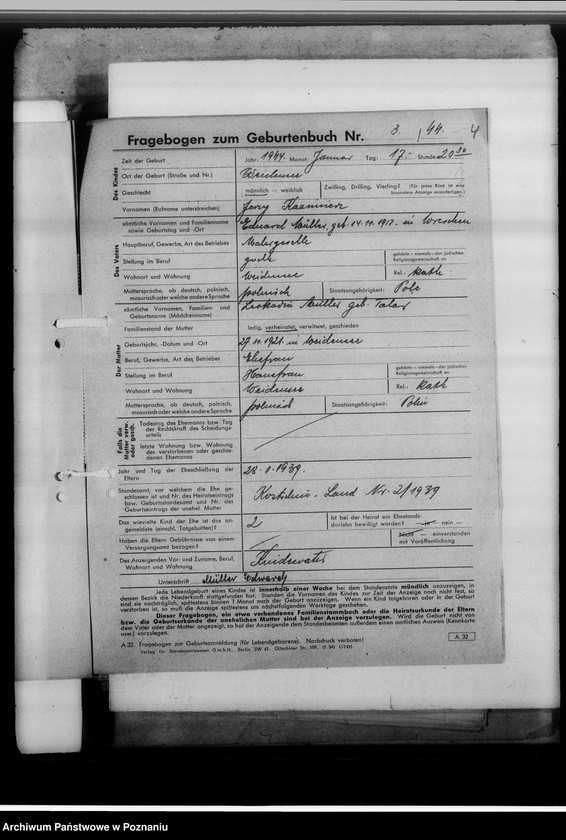 Fragebogen zum Geburtenbuch Nr. 3. / 44. 4
Des Kindes
Zeit der Geburt
Jahr: 1944. Monat: Januar Tag: 17. Stunde 20 30
Ort der Geburt (Straße und Nr.)
Geschlecht
männlich — weiblich
Zwilling, Drilling, Vierling? (Für jedes Kind ist eine besondere Anzeige auszufertigen.)
Vornamen (Rufname unterstreichen)
Jerzy Kazimierz
Des Vaters
sämtliche Vornamen und Familienname sowie Geburtstag und -Ort
Eduard Müller, geb. 14.11.1913. in Wreschen
Hauptberuf, Gewerbe, Art des Betriebes
Malergeselle
Stellung im Beruf
gehörte — niemals — der jüdischen Religionsgemeinschaft an
Wohnort und Wohnung
Rel.: kath.
Muttersprache, ob deutsch, polnisch, masurisch oder welche andere Sprache
polnisch
Staatsangehörigkeit: Pole
Der Mutter
sämtliche Vornamen, Familien- und Geburtsname (Mädchenname)
Leokadia Müller geb. Talar
Familienstand der Mutter
ledig, verheiratet, verwitwet, geschieden
Geburtsjahr, -Datum und -Ort
27.11.1921. in
Beruf, Gewerbe, Art des Betriebes
Ehefrau
Stellung im Beruf
Hausfrau
gehörte — niemals — der jüdischen Religionsgemeinschaft an
Wohnort und Wohnung
Rel.: kath.
Muttersprache, ob deutsch, polnisch, masurisch oder welche andere Sprache
polnisch
Staatsangehörigkeit: Polin
Falls die Mutter verw. oder gesch.
Todestag des Ehemanns bzw. Tag der Rechtskraft des Scheidungsurteils
letzte Wohnung bzw. Wohnung des verstorbenen oder geschiedenen Ehemanns
Jahr und Tag der Eheschließung der Eltern
1939.
Standesamt, vor welchem die Ehe geschlossen ist und Nr. des Heiratseintrags bzw. Geburtsstandesamt und Nr. des Geburtseintrags der unehel. Mutter
Land Nr. 2/1939
Das wievielte Kind der Ehe ist das angemeldete (einschl. Totgebutten)?
2
Ist bei der Heirat ein Ehestandsdarlehn bewilligt worden? — ja — nein —
Haben die Eltern Gebührnisse von einem Versorgungsamt bezogen?
Nicht — einverstanden mit Veröffentlichung
Des Anzeigenden Vor- und Zuname, Beruf, Wohnort und Wohnung
Kindsvater
Unterschrift Müller Edward
Jede Lebendgeburt eines Kindes ist innerhalb einer Woche bei dem Standesamte mündlich anzuzeigen, in
dessen Bezirk die Niederkunft stattgefunden hat. Standen die Vornamen des Kindes zur Zeit der Anzeige noch nicht fest, so
sind sie nachträglich, spätestens binnen 1 Monat nach der Geburt anzuzeigen. Wenn ein Kind totgeboren oder in der Geburt
verstorben ist, so muß die Anzeige spätestens am nächstfolgenden Werktage geschehen.
Dieser Fragebogen, ein etwa vorhandenes Familienstammbuch oder die Heiratsurkunde der Eltern
bzw. die Geburtsurkunde der unehelichen Mutter sind bei der Anzeige vorzulegen. Wird die Geburt nicht von
dem Vater oder der Mutter angezeigt, so hat der Anzeigende dem Standesbeamten außerdem einen amtlichen Ausweis (Kennkarte
usw.) vorzulegen.
A 32. Fragebogen zur Geburtsanmeldung (für Lebendgeborene). Nachdruck verboten!
A 32
Verlag für Standesamtswesen G.m.b.H., Berlin SW 61, Gitschiner Str. 109.
Archiwum Państwowe w Poznaniu